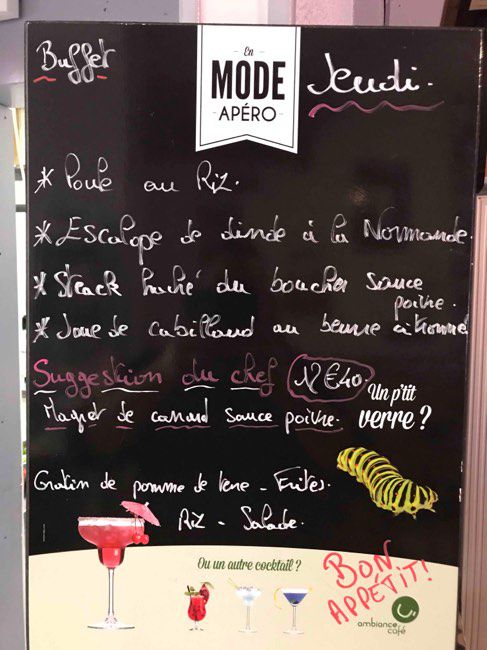 Buffet
En
MODE
APÉRO
Jeudi.
* Poule au Riz.
* Escalope de dinde à la Normande.
* Steack haché du boucher sauce
poivre.
* Joue de cabillaud au beurre citronné
Suggestion du chef 12€40
Un p'tit
verre ?
Magret de canard sauce poivre.
Gratin de pomme de terre - Frites.
Riz - Salade.
Ou un autre cocktail ?
BON
APPÉTIT!
ambiance
café